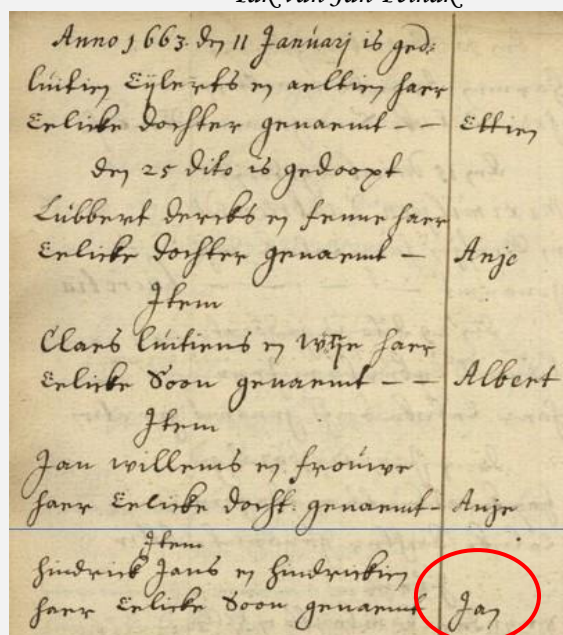 Tak van Jan Telnak
Anno 1663 den 11 Januarij is ged:
luitien Eijlerts en aeltien haer
Eelicke dochter genaemt — — Ettien
den 25 dito is gedoopt
Lubbert dercks en fenne haer
Eelicke dochter genaemt — Anje
Item
Claes luitiens en Wije haer
Eelicke Soon genaemt — — Albert
Item
Jan willems en frouwe
haer Eelicke docht. genaemt - Anje
Item
hindrick Jans en hindrickien
haer Eelicke Soon genaemt Jan